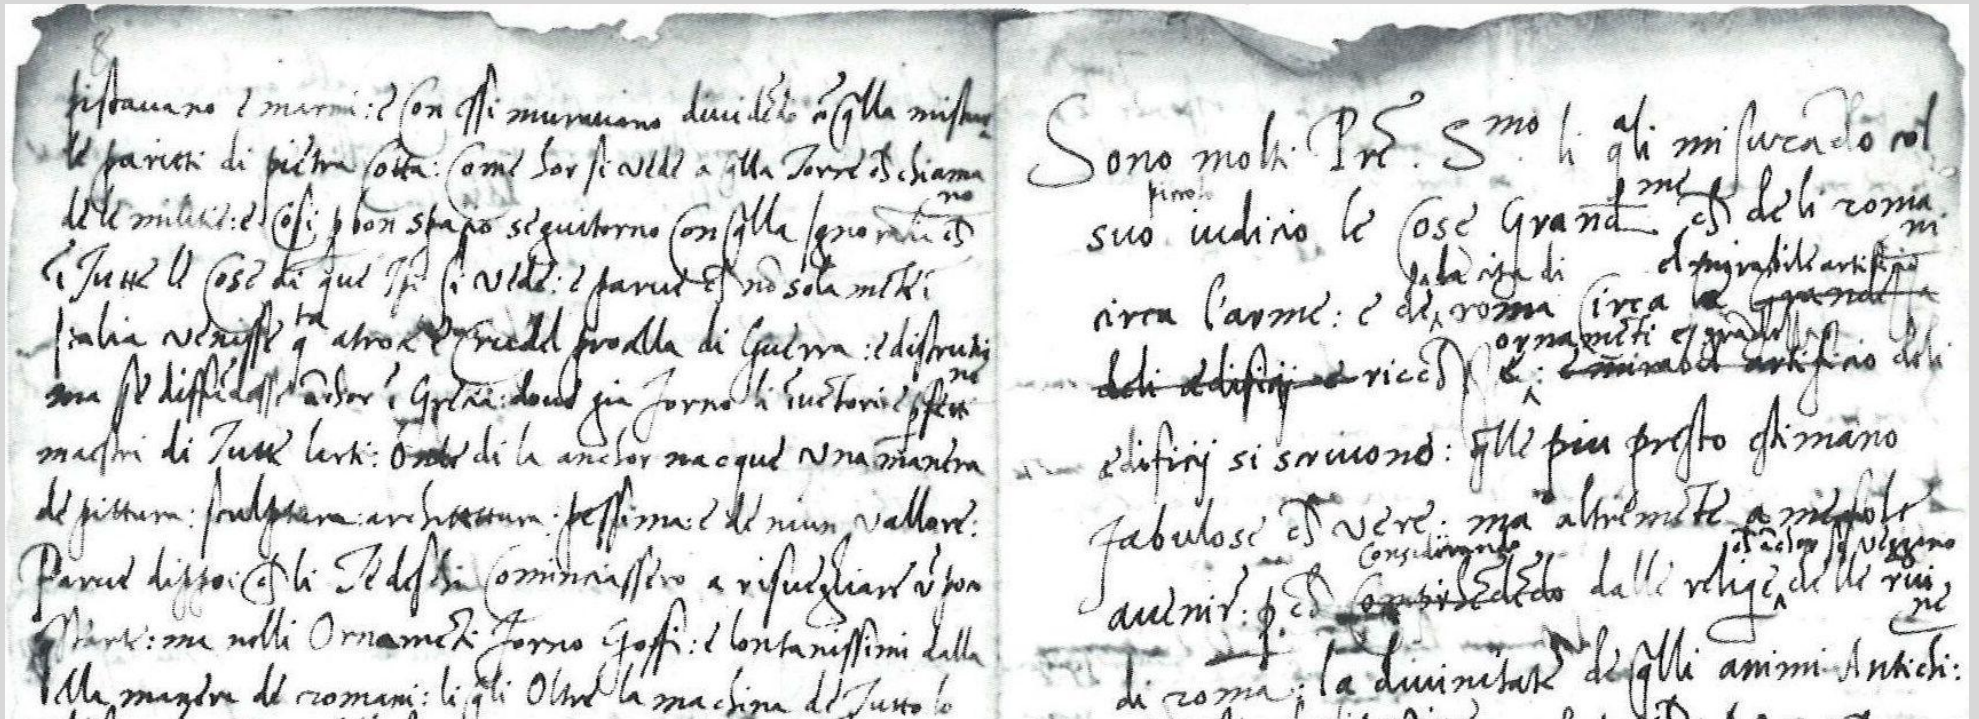 8
pistavano e marmi: e Con essi muravano dividẽdo cõ q̃lla mistura
le parieti di pietra Cotta: Come hor si vede a q̃lla Torre ch̃ chiamano
dele militie: e Cosi p bon spatio seguitorno Con q̃lla Ignorãtia ch̃
ĩ Tutte le Cose di que Tp̃i si vede: e parve ch̃ nõ solamẽte ĩ
Italia venisse q̃sta atroce e Crudel proc̃lla di Guerra: e distrutiõe
ma se diffũdesse ãchor ĩ Grecia: dove gia forno li ĩvẽtori e pfetti
mastri di Tutte larti: Onde di la anchor nacque una manera
de pittura: sculptura: architettura: pessima: e de niun vallore:
Parve dippoi ch̃ li Tedeschi Cominciassero a risvegliare ũ poco
q̃starte: ma nelli Ornamẽti forno Goffi: e lontanissimi dalla
bella manera de romani: li q̃li Oltre la machina de Tutto lo
Sono molti Prẽ. Smo. li q̃li misurãdo col
suo piccolo iudicio le Cose Grandme ch̃ deli romani
circa l'arme: e de la cita di roma Circa el mirabile artificio
deli edificij e ricch̃ ornamẽti e grãde : e mirabel artificio deli
edificij si scrivono: q̃lle piu presto estimano
fabulose ch̃ vere: ma altremẽte a me sole
avenir: p ch̃ Considerando dalle reliq̃e ch̃ ãchor si veggono delle ruine
di roma: la divinitate de q̃lli animi Antichi: